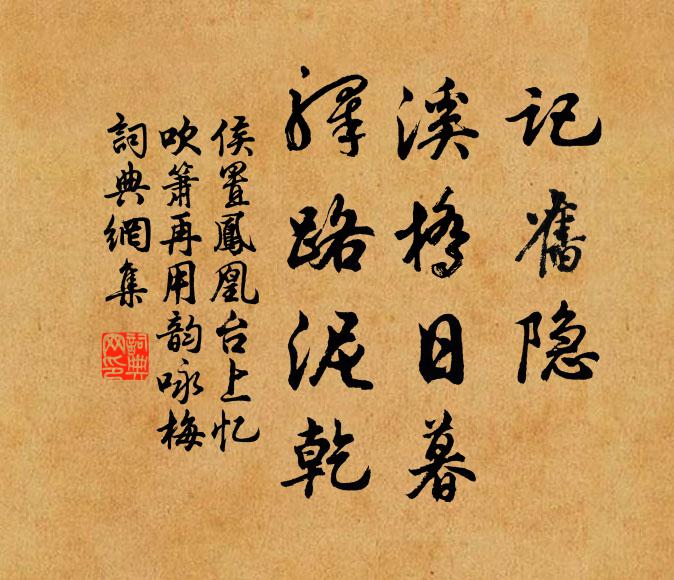 记舊隐
溪橋日暮
驛路泥乾
侯置鳳凰台上忆
吹簫再用韵咏梅
詞典網集
詞典
网印